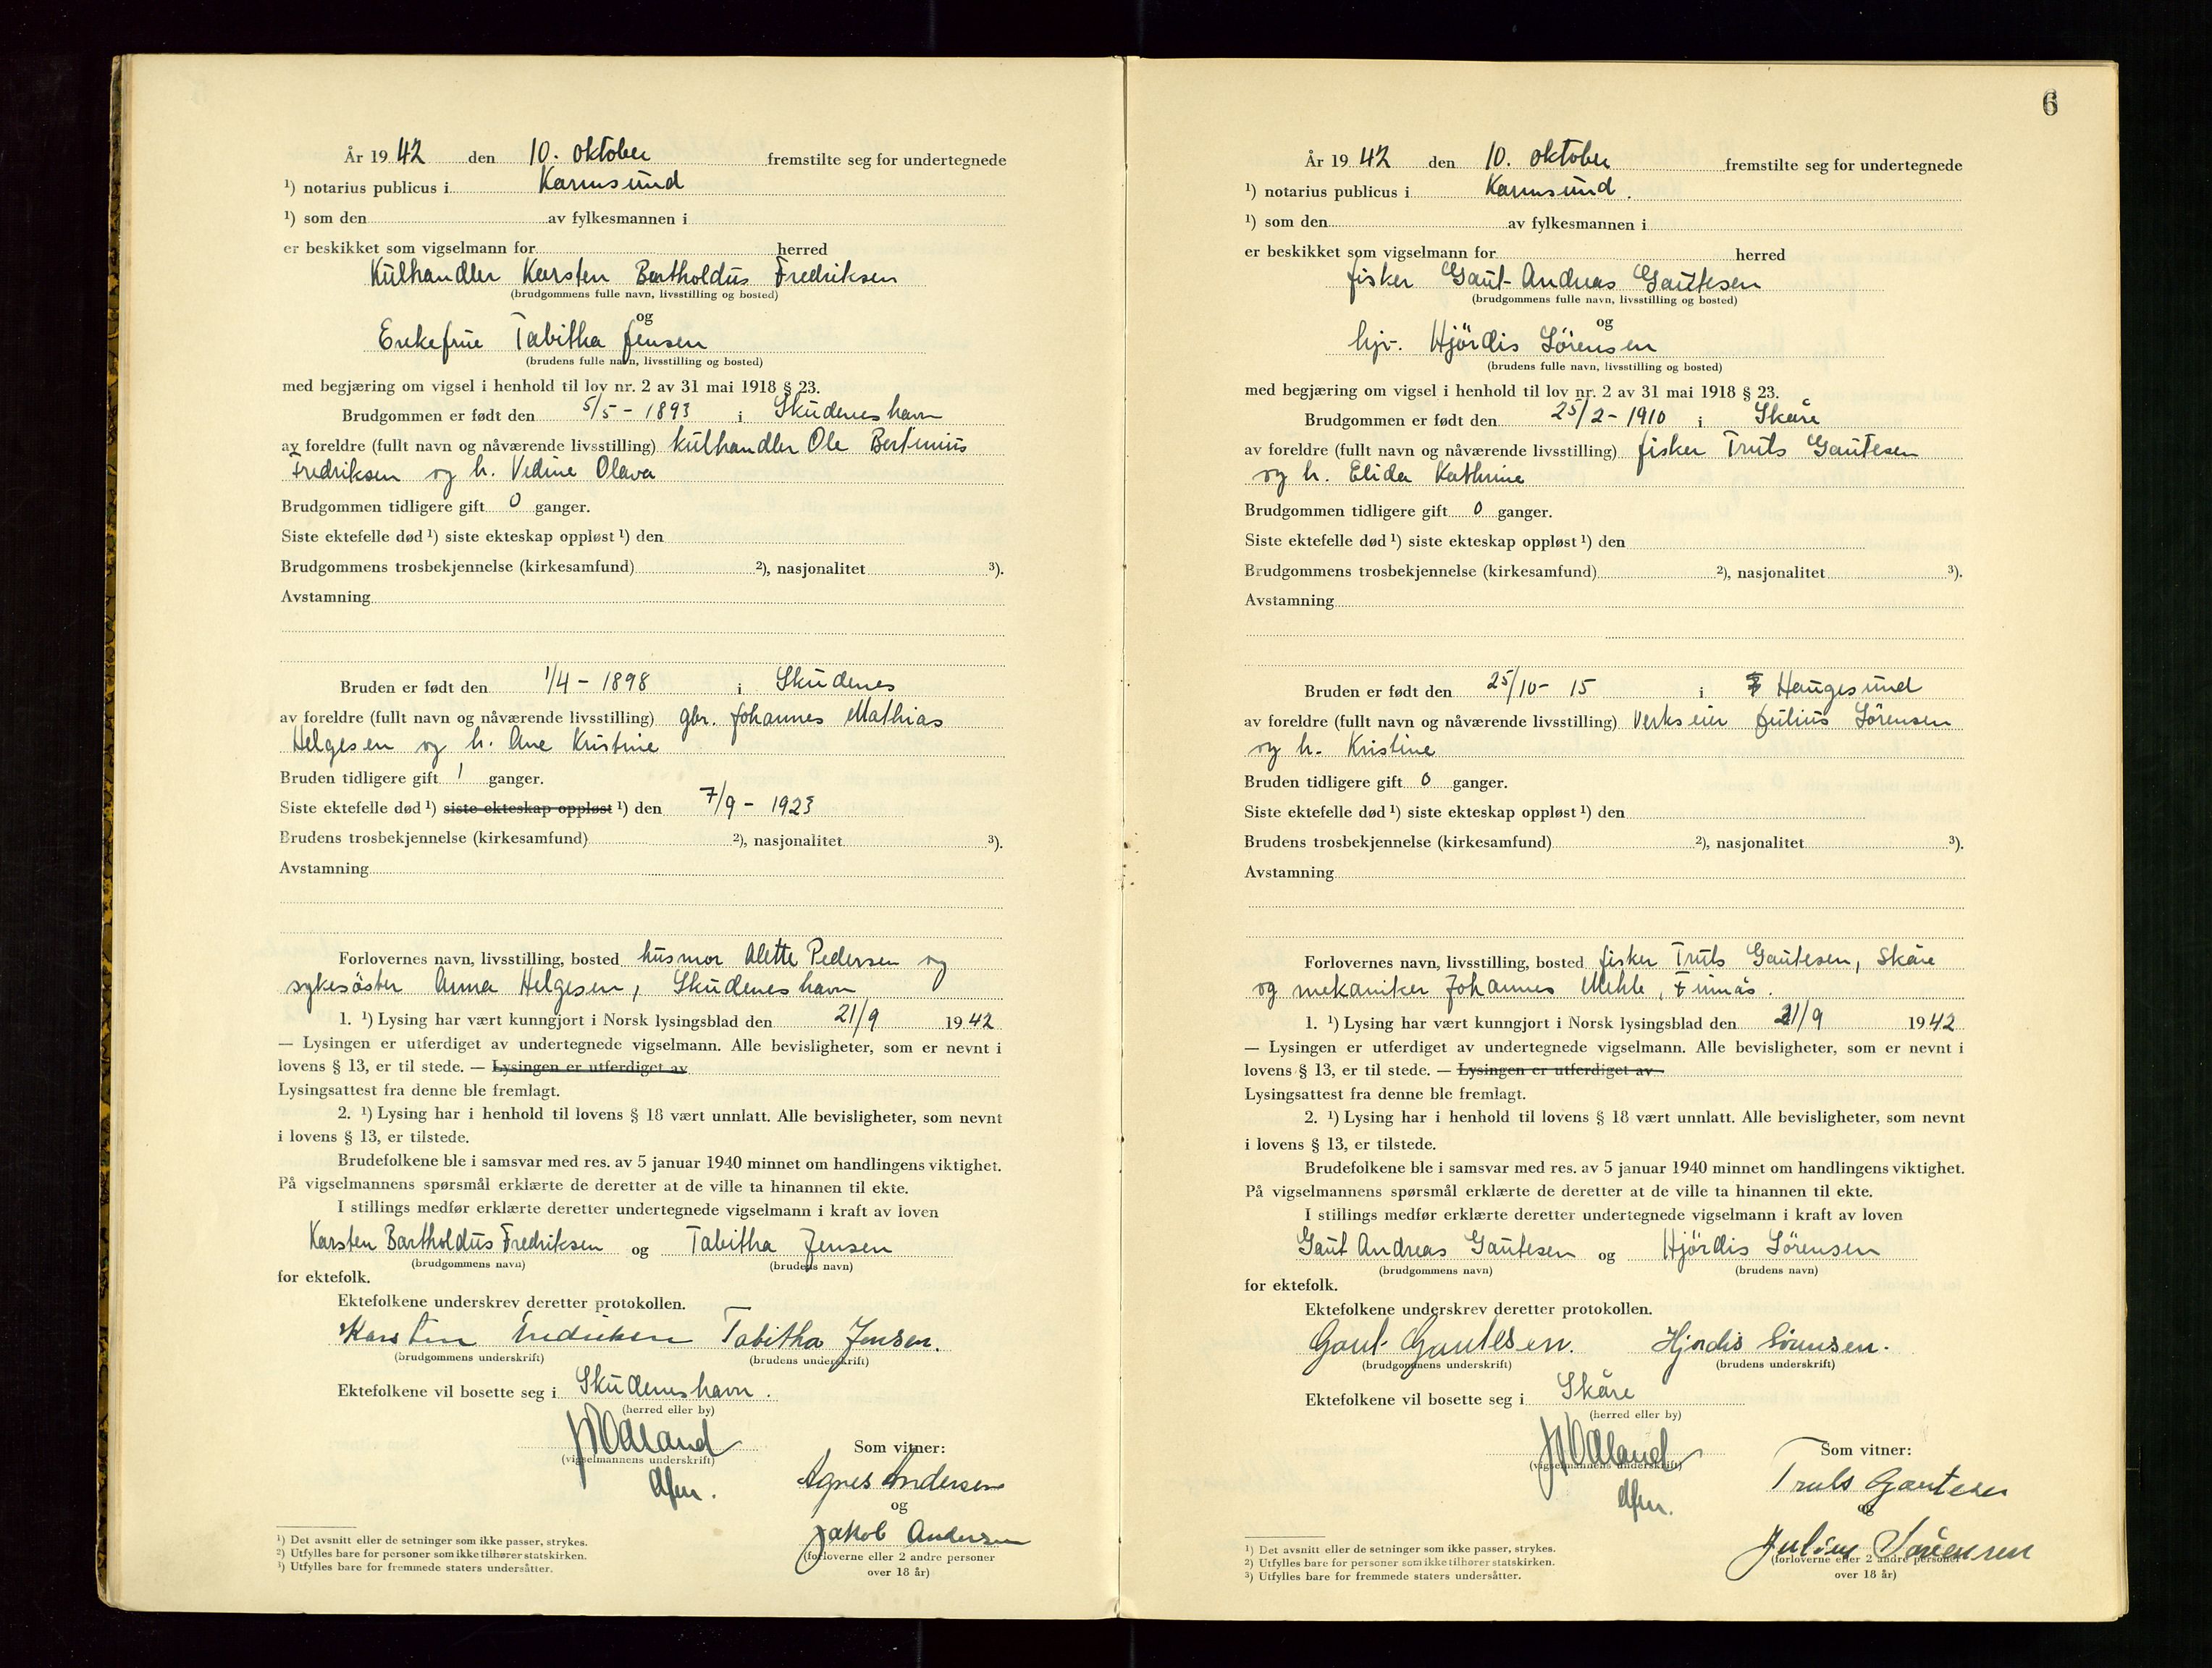 År 1942 den 10. oktober fremstilte seg for undertegnede
¹) notarius publicus i Karmsund
¹) som den av fylkesmannen i
er beskikket som vigselmann for herred
Kulhandler Karsten Bartholdus Fredriksen
(brudgommens fulle navn, livsstilling og bosted)
og
Enkefrue Tabitha Jensen
(brudens fulle navn, livsstilling og bosted)
med begjæring om vigsel i henhold til lov nr. 2 av 31 mai 1918 § 23.
Brudgommen er født den 5/5 - 1893 i Skudeneshavn
av foreldre (fullt navn og nåværende livsstilling) kulhandler Ole Bertinius
Fredriksen og h. Vedine Olava
Brudgommen tidligere gift 0 ganger.
Siste ektefelle død ¹) siste ekteskap oppløst ¹) den
Brudgommens trosbekjennelse (kirkesamfund) ²), nasjonalitet ³).
Avstamning
Bruden er født den 1/4 - 1898 i Skudenes
av foreldre (fullt navn og nåværende livsstilling) gbr. Johannes Mathias
Helgesen og h. Ane Kristine
Bruden tidligere gift 1 ganger.
Siste ektefelle død ¹) siste ekteskap oppløst ¹) den 7/9 - 1923
Brudens trosbekjennelse (kirkesamfund) ²), nasjonalitet ³).
Avstamning
Forlovernes navn, livsstilling, bosted husmor Alette Pedersen og
sykesöster Anna Helgesen, Skudeneshavn
1. ¹) Lysing har vært kunngjort i Norsk lysingsblad den 21/9 1942
— Lysingen er utferdiget av undertegnede vigselmann. Alle bevisligheter, som er nevnt i
lovens § 13, er til stede. — Lysingen er utferdiget av
Lysingsattest fra denne ble fremlagt.
2. ¹) Lysing har i henhold til lovens § 18 vært unnlatt. Alle bevisligheter, som nevnt
i lovens § 13, er tilstede.
Brudefolkene ble i samsvar med res. av 5 januar 1940 minnet om handlingens viktighet.
På vigselmannens spørsmål erklærte de deretter at de ville ta hinannen til ekte.
I stillings medfør erklærte deretter undertegnede vigselmann i kraft av loven
Karsten Bartholdus Fredriksen og Tabitha Jensen
(brudgommens navn) (brudens navn)
for ektefolk.
Ektefolkene underskrev deretter protokollen.
Karsten Fredriksen Tabitha Jensen.
(brudgommens underskrift) (brudens underskrift)
Ektefolkene vil bosette seg i Skudeneshavn.
(herred eller by)
Ådland
(vigselmannens underskrift)
dfm.
Som vitner:
Agnes Andersen
og
Jakob Andersen
(forloverne eller 2 andre personer
over 18 år)
¹) Det avsnitt eller de setninger som ikke passer, strykes.
²) Utfylles bare for personer som ikke tilhører statskirken.
³) Utfylles bare for fremmede staters undersåtter.
6
År 1942 den 10. oktober fremstilte seg for undertegnede
¹) notarius publicus i Karmsund.
¹) som den av fylkesmannen i
er beskikket som vigselmann for herred
fisker Gaut Andreas Gautesen
(brudgommens fulle navn, livsstilling og bosted)
og
hjv. Hjördis Sörensen
(brudens fulle navn, livsstilling og bosted)
med begjæring om vigsel i henhold til lov nr. 2 av 31 mai 1918 § 23.
Brudgommen er født den 25/2 - 1910 i Skåre
av foreldre (fullt navn og nåværende livsstilling) fisker Truls Gautesen
og h. Elida Kathrine
Brudgommen tidligere gift 0 ganger.
Siste ektefelle død ¹) siste ekteskap oppløst ¹) den
Brudgommens trosbekjennelse (kirkesamfund) ²), nasjonalitet ³).
Avstamning
Bruden er født den 25/10 - 15 i Haugesund
av foreldre (fullt navn og nåværende livsstilling) Verkseier Julius Sörensen
og h. Kristine
Bruden tidligere gift 0 ganger.
Siste ektefelle død ¹) siste ekteskap oppløst ¹) den
Brudens trosbekjennelse (kirkesamfund) ²), nasjonalitet ³).
Avstamning
Forlovernes navn, livsstilling, bosted fisker Truls Gautesen, Skåre
og mekaniker Johannes Mehle,
1. ¹) Lysing har vært kunngjort i Norsk lysingsblad den 21/9 1942
— Lysingen er utferdiget av undertegnede vigselmann. Alle bevisligheter, som er nevnt i
lovens § 13, er til stede. — Lysingen er utferdiget av
Lysingsattest fra denne ble fremlagt.
2. ¹) Lysing har i henhold til lovens § 18 vært unnlatt. Alle bevisligheter, som nevnt
i lovens § 13, er tilstede.
Brudefolkene ble i samsvar med res. av 5 januar 1940 minnet om handlingens viktighet.
På vigselmannens spørsmål erklærte de deretter at de ville ta hinannen til ekte.
I stillings medfør erklærte deretter undertegnede vigselmann i kraft av loven
Gaut Andreas Gautesen og Hjördis Sörensen
(brudgommens navn) (brudens navn)
for ektefolk.
Ektefolkene underskrev deretter protokollen.
Gaut Gautesen. Hjördis Sörensen.
(brudgommens underskrift) (brudens underskrift)
Ektefolkene vil bosette seg i Skåre
(herred eller by)
Ådland
(vigselmannens underskrift)
dfm.
Som vitner:
Truls Gautesen
og
Julius Sörensen
(forloverne eller 2 andre personer
over 18 år)
¹) Det avsnitt eller de setninger som ikke passer, strykes.
²) Utfylles bare for personer som ikke tilhører statskirken.
³) Utfylles bare for fremmede staters undersåtter.